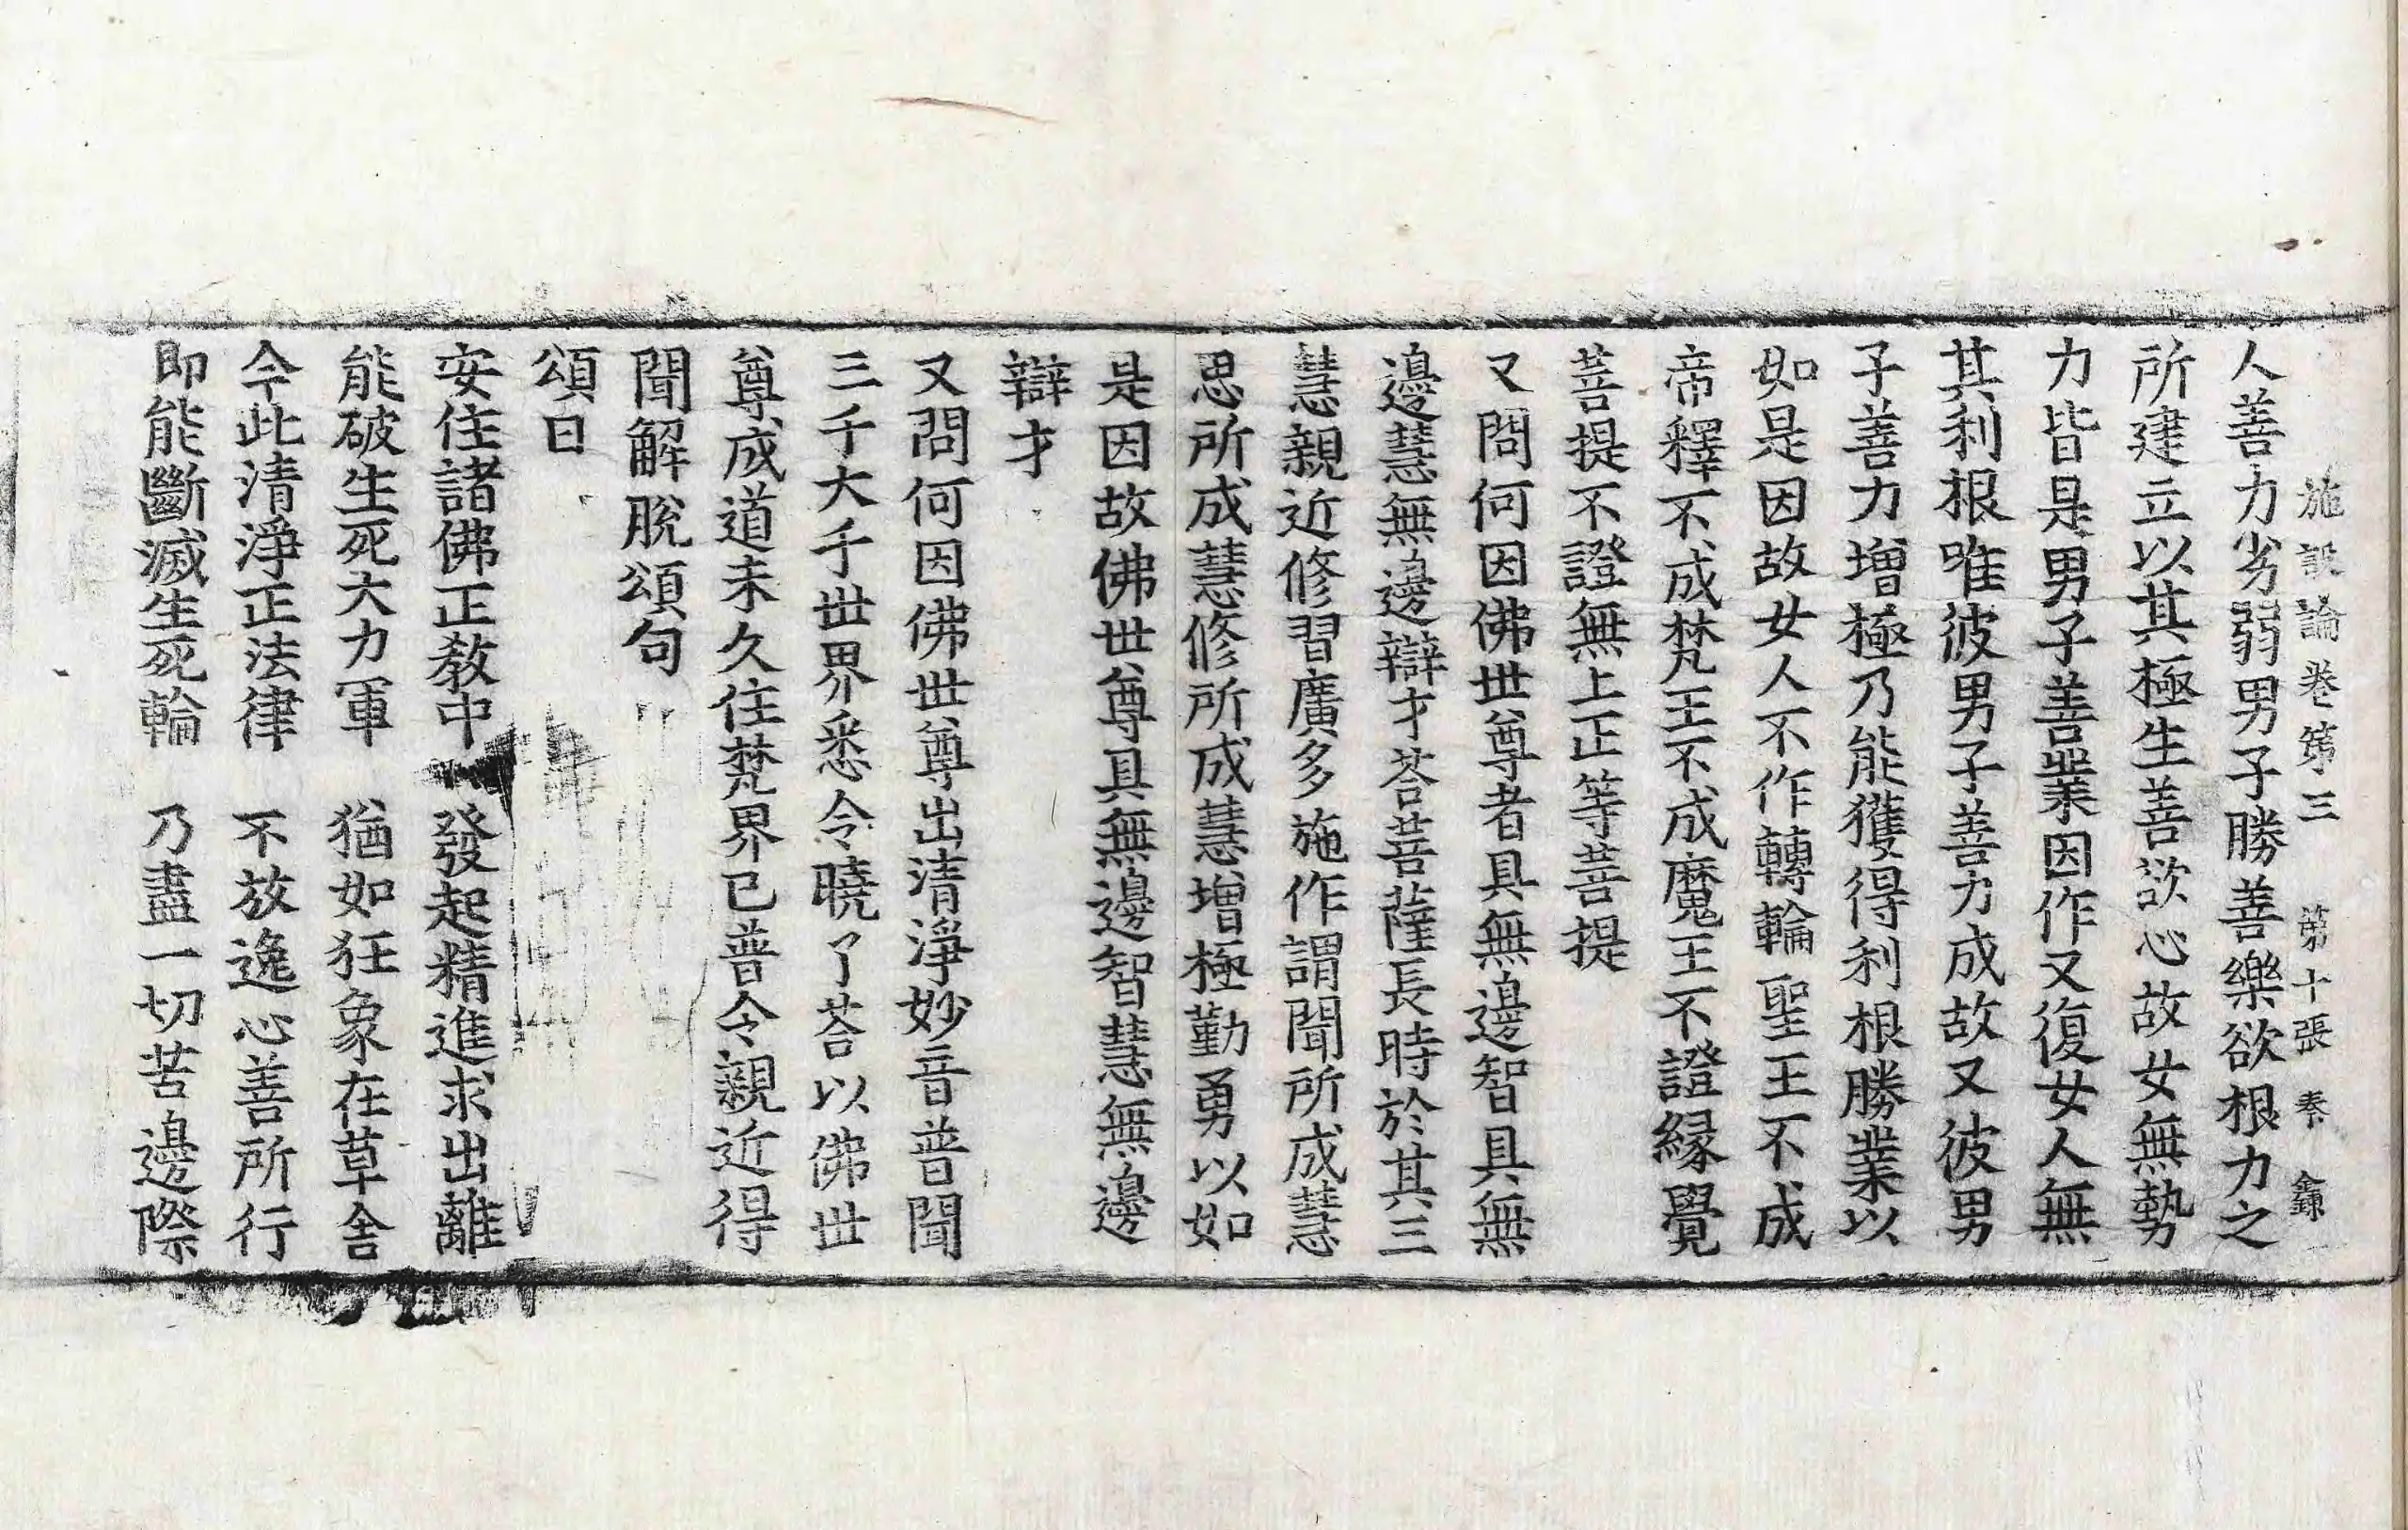 施設論卷第三 第十張 奏 鎌
人善力劣弱男子勝善樂欲根力之
所建立以其極生善欲心故女無勢
力皆是男子善業因作又復女人無
其利根唯彼男子善力成故又彼男
子善力增極乃能獲得利根勝業以
如是因故女人不作轉輪聖王不成
帝釋不成梵王不成魔王不證緣覺
菩提不證無上正等菩提
又問何因佛世尊者具無邊智具無
邊慧無邊辯才荅菩薩長時於其三
慧親近修習廣多施作謂聞所成慧
思所成慧修所成慧增極勤勇以如
是因故佛世尊具無邊智慧無邊
辯才
又問何因佛世尊出清淨妙音普聞
三千大千世界悉令曉了荅以佛世
尊成道未久住梵界已普令親近得
聞解脫頌句
頌曰
安住諸佛正教中 發起精進求出離
能破生死大力軍 猶如狂象在草舍
今此清淨正法律 不放逸心善所行
即能斷滅生死輪 乃盡一切苦邊際